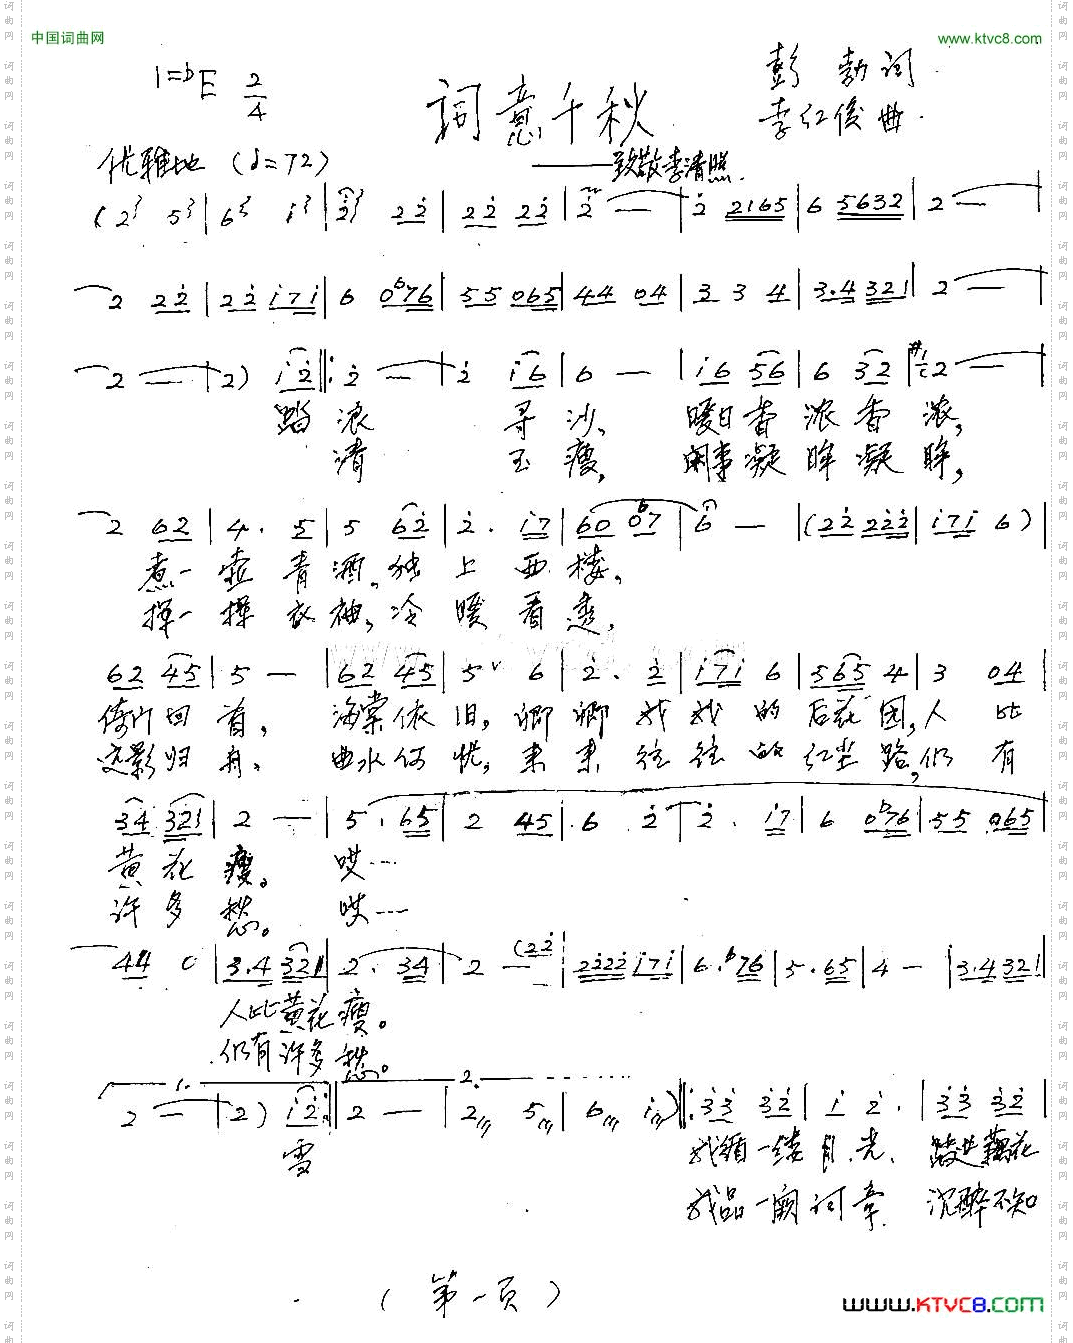 中国词曲网
www.ktvc8.com
1=bE 2/4
彭勃词
词意千秋
李红俊曲
优雅地 (♩=72)
——致敬李清照
(2 5 | 6 i | 2 2 2 | 2 2 2 2 | 2 — | 2 2 1 6 5 | 6 5 6 3 2 | 2 —
2 2 2 | 2 2 i 7 i | 6 0 b7 6 | 5 5 0 6 5 | 4 4 0 4 | 3 3 4 | 3. 4 3 2 1 | 2 — |
2 — | 2) i 2 |: 2 — | 2 i 6 | 6 — | i 6 5 6 | 6 3 2 | 2 — |
踏浪 寻沙, 暖日香浓香浓,
清 玉瘦, 闲事凝眸凝眸,
2 6 2 | 4. 5 | 5 6 2 | 2. i 7 | 6 0 0 b7 | 6 — | (2 2 2 2 2 | i 7 i 6) |
煮一壶青酒, 独上西楼,
掸一掸衣袖, 冷暖看透,
6 2 4 5 | 5 — | 6 2 4 5 | 5 ∨ 6 | 2. 2 | i 7 i 6 | 5 6 5 4 | 3 0 4 |
倚门回首, 海棠依旧, 卿卿我我的后花园, 人比
文影归舟, 曲水何忧, 来来往往的红尘路, 仍有
3 4 3 2 1 | 2 — | 5. 6 5 | 2 4 5 | 6 2 | 2. i 7 | 6 0 b7 6 | 5 5 0 6 5 |
黄花瘦。 哎…
许多愁。 哎…
4 4 0 | 3. 4 3 2 1 | 2. 3 4 | 2 — (2 2 | 2 2 2 2 i 7 i | 6. b7 6 | 5. 6 5 | 4 — | 3. 4 3 2 1
人比黄花瘦。
仍有许多愁。
1. 2.
2 — | 2) i 2 :| 2 — | 2 5 | 6 i) |: 3 3 3 2 | i 2. | 3 3 3 2 |
雪 我循一缕月光, 踏进藕花
我品一阕词章, 沉醉不知
(第一页)
www.KTVC8.com